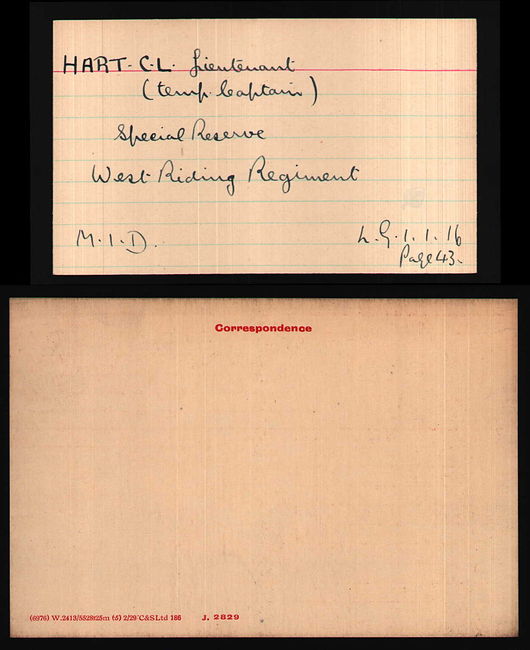 HART. C.L. Lieutenant
(temp. Captain)
Special Reserve
West Riding Regiment
M.I.D.
L.G. 1.1.16
Page 43.
Correspondence
(6976) W.2413/5528 25m (5) 2/29 C&S Ltd 186 J. 2829